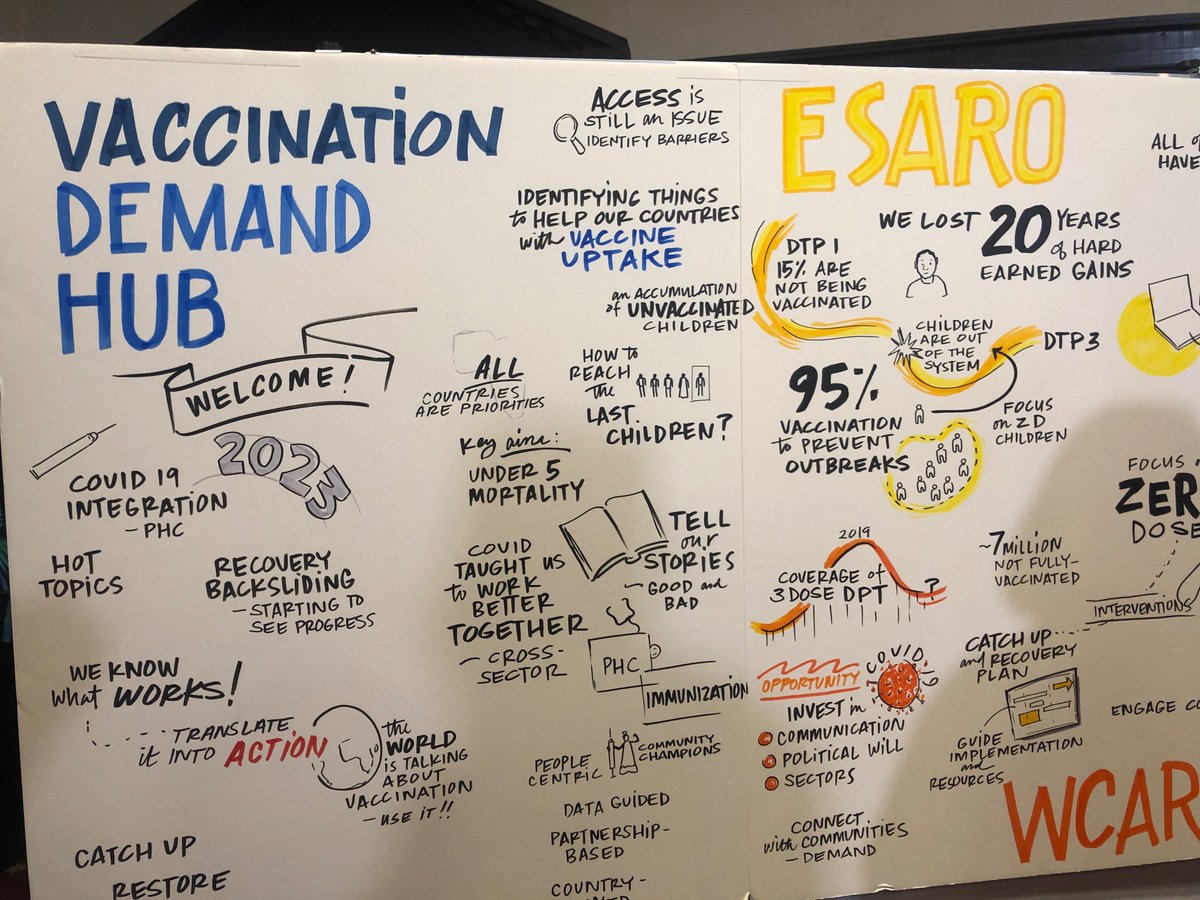 VACCINATION
DEMAND
HUB
WELCOME!
2023
COVID 19
INTEGRATION
- PHC
HOT
TOPICS
RECOVERY
BACKSLIDING
- STARTING TO
SEE PROGRESS
WE KNOW
what WORKS!
TRANSLATE
it INTO ACTION
the
WORLD
is TALKING
ABOUT
VACCINATION
- USE IT!!
CATCH UP
RESTORE
ACCESS is
STILL an ISSUE
IDENTIFY BARRIERS
IDENTIFYING THINGS
to HELP OUR COUNTRIES
with VACCINE
UPTAKE
an ACCUMULATION
of UNVACCINATED
CHILDREN
ALL
COUNTRIES
ARE PRIORITIES
HOW to
REACH
the
LAST
CHILDREN?
Key aims:
UNDER 5
MORTALITY
COVID
TAUGHT US
to WORK
BETTER
TOGETHER
- CROSS-
SECTOR
TELL
our
STORIES
- GOOD and
BAD
PHC
IMMUNIZATION
PEOPLE
CENTRIC
COMMUNITY
CHAMPIONS
DATA GUIDED
PARTNERSHIP-
BASED
COUNTRY-
ESARO
WE LOST 20 YEARS
of HARD
EARNED GAINS
DTP 1
15% ARE
NOT BEING
VACCINATED
CHILDREN
ARE OUT
OF THE
SYSTEM
DTP 3
95%
VACCINATION
to PREVENT
OUTBREAKS
FOCUS
on ZD
CHILDREN
2019
COVERAGE of
3 DOSE DPT
?
~7 MILLION
NOT FULLY-
VACCINATED
OPPORTUNITY
COVID 19
INVEST in
COMMUNICATION
POLITICAL WILL
SECTORS
CONNECT
with COMMUNITIES
- DEMAND
CATCH UP
and RECOVERY
PLAN
GUIDE
IMPLEMENTATION
and
RESOURCES
ALL
HAVE
FOCUS
DOSE
INTERVENTIONS
ENGAGE
WCAR